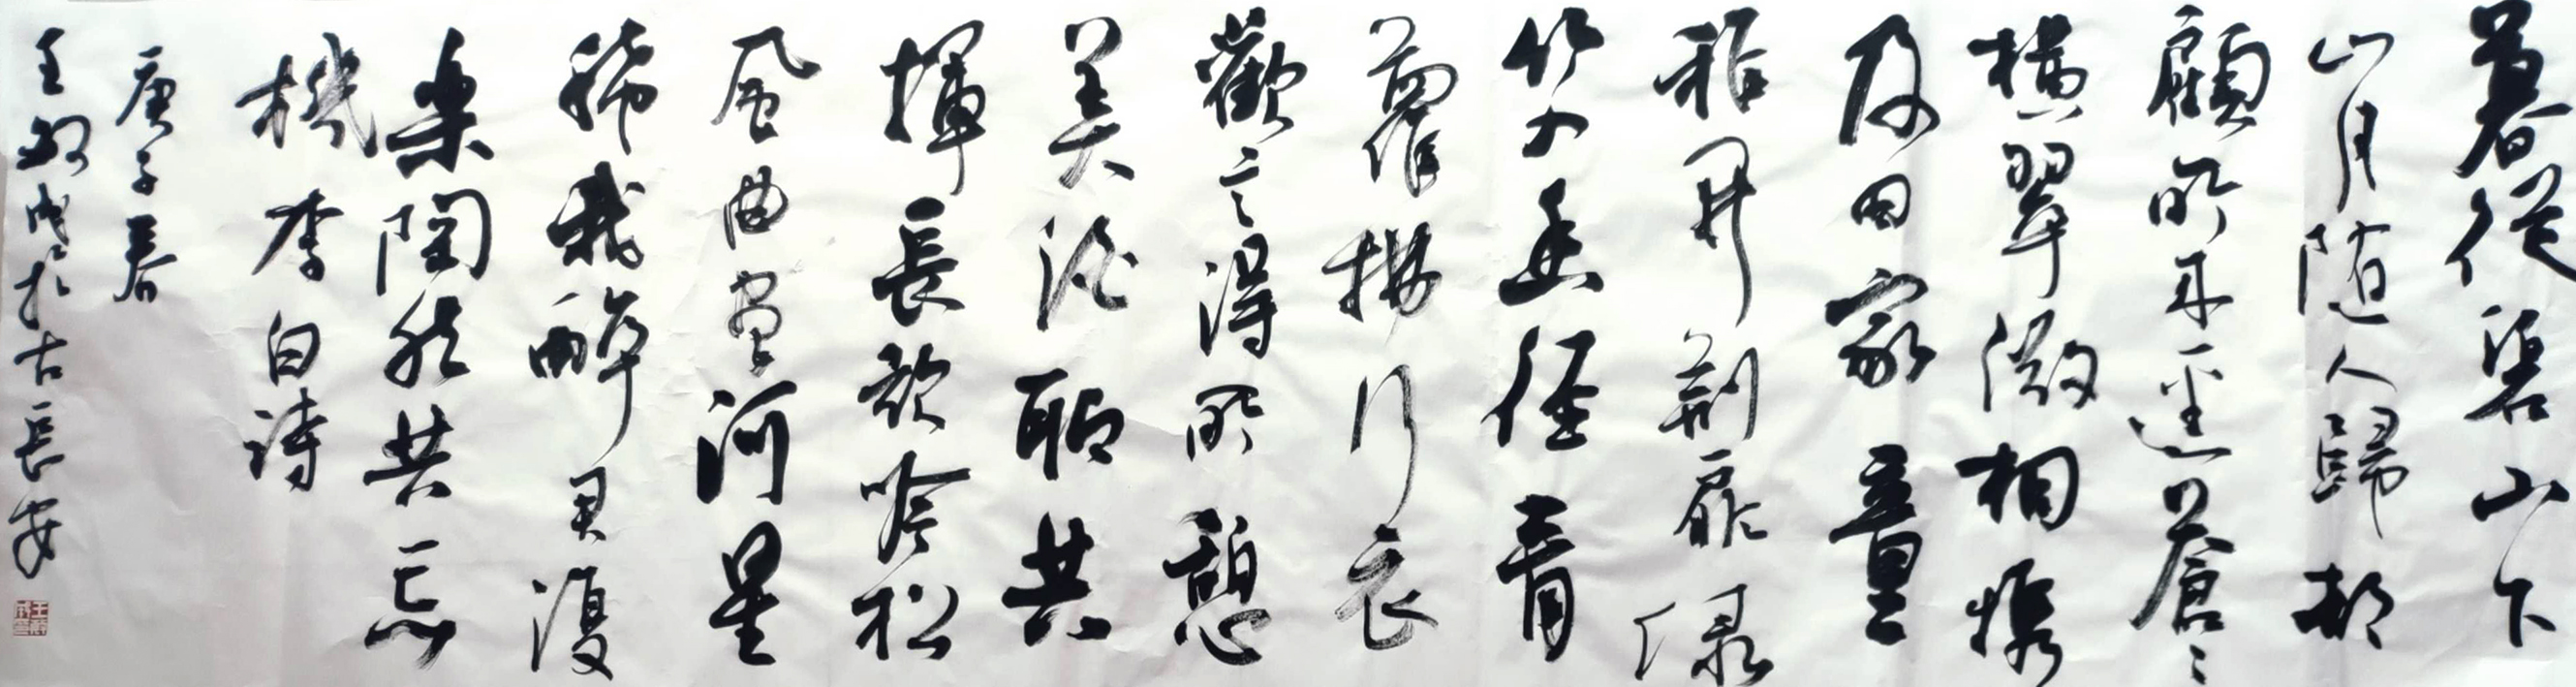 暮從碧山下
山月随人歸却
顧所来逕蒼々
橫翠微相携
及田家童
稚開荆扉绿
竹入幽徑青
蘿拂行衣
歡言得所憩
美酒聊共
揮長歌吟松
風曲盡河星
稀我醉君復
樂陶然共忘
機 李白詩
庚子春
王 於古長安